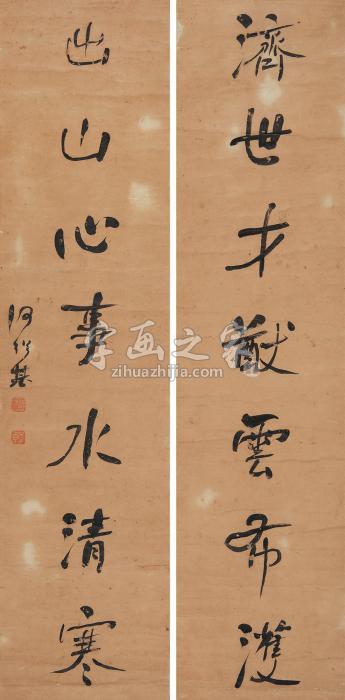 濟世才猷雲布濩
出山心事水清寒
何紹基
字画之家
zihuazhijia.com